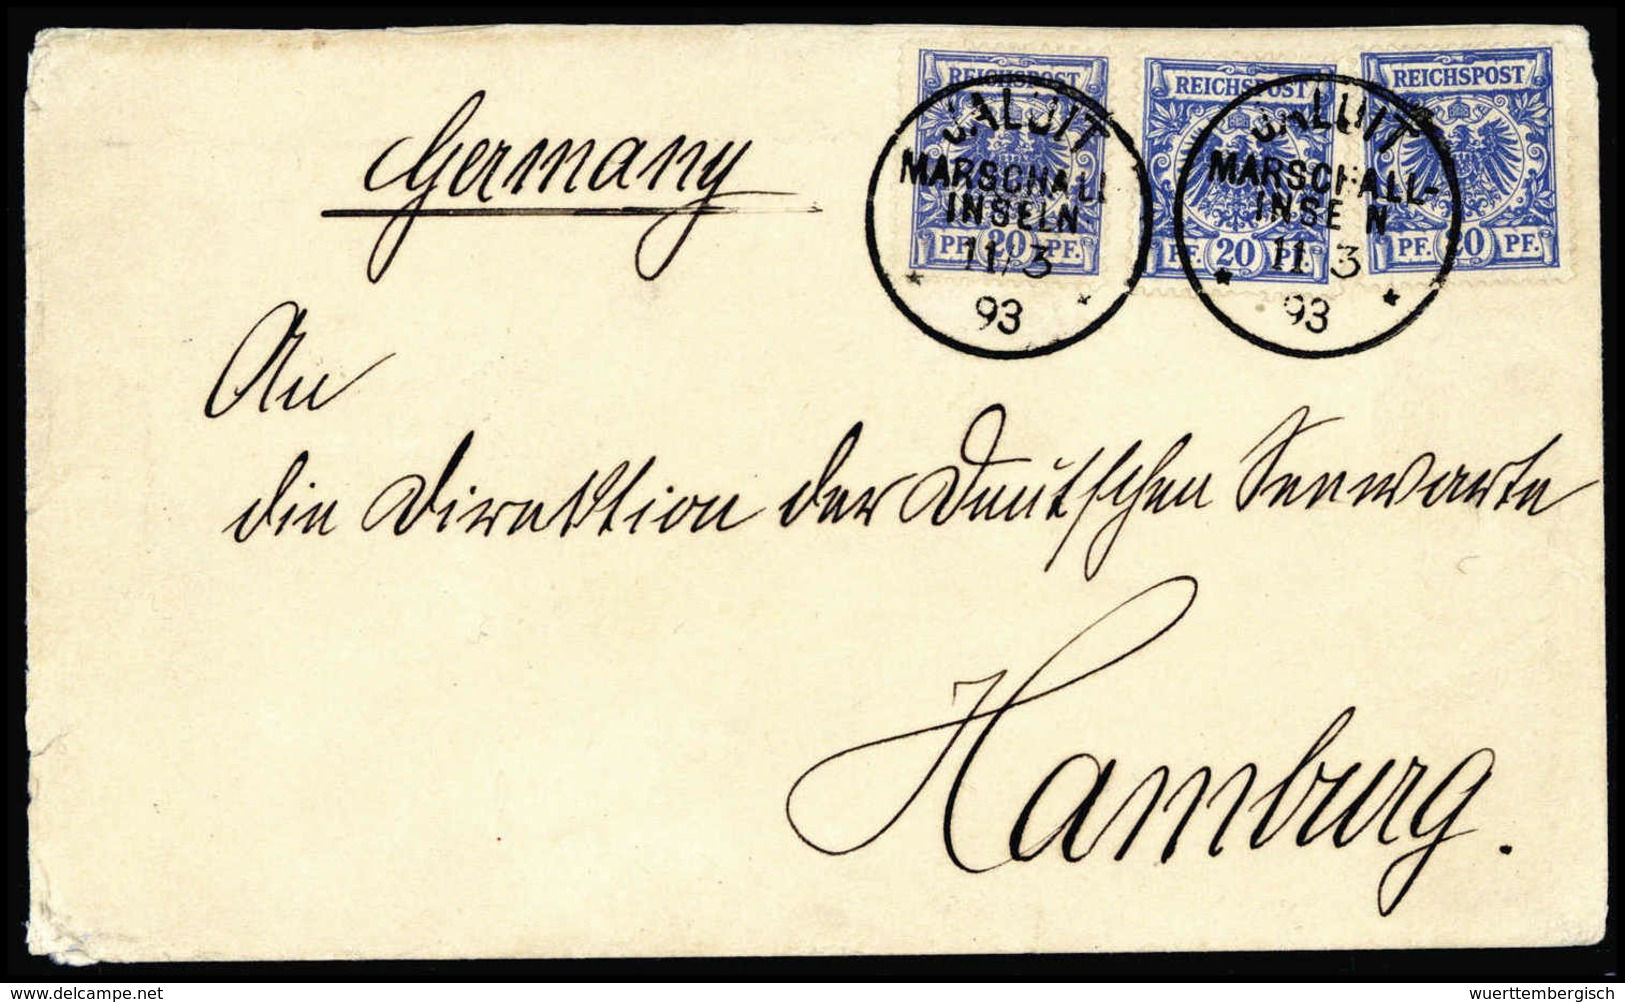 REICHSPOST REICHSPOST REICHSPOST
JALUIT JALUIT
MARSCHALL MARSCHALL-
INSELN INSE N
PF. 20 PF. PF. 20 PF. PF. 20 PF.
11/3 11 3
93 93
Germany
An
die Direktion der Deutschen Seewarte
Hamburg.
delcampe.net
wuerttembergisch